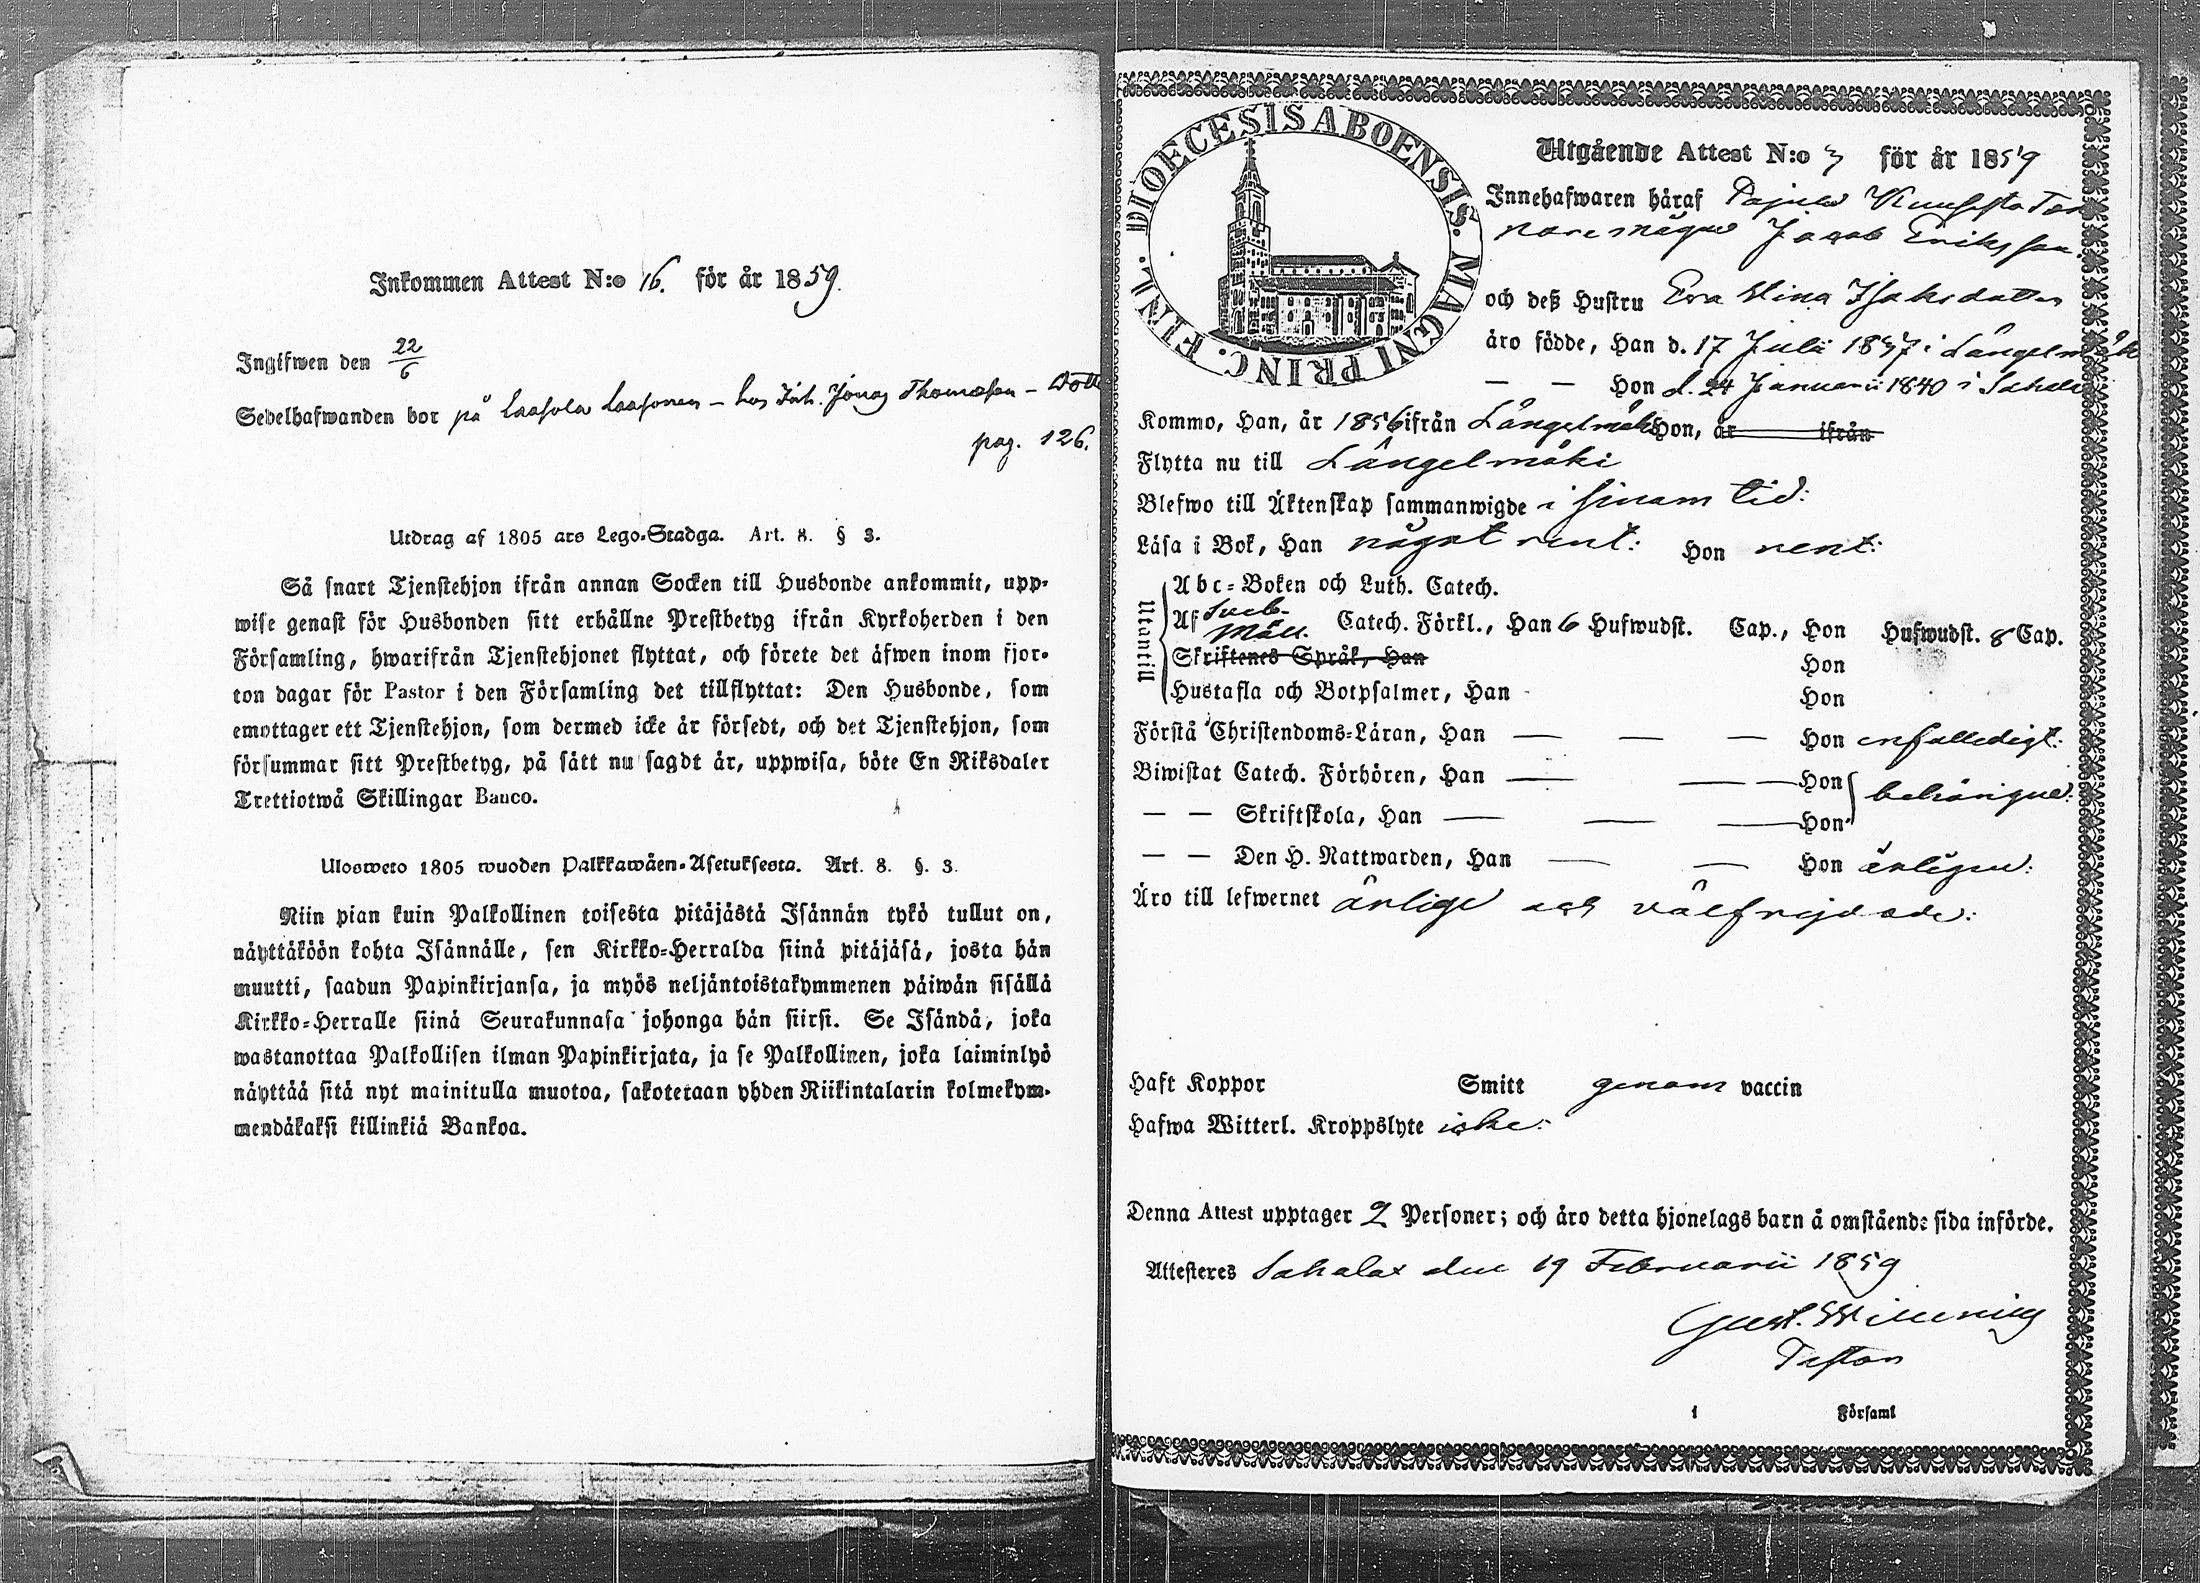 Inkommen Attest N:o 16. för år 1859.
Ingifwen den 22/6
Sedelhafwanden bor på Laasola Laasonen – hos Joh. Jonas Thomasson –
pag. 126.
Utdrag af 1805 års Lego-Stadga. Art. 8. § 3.
Så snart Tjenstehjon ifrån annan Socken till Husbonde ankommit, upp-
wise genast för Husbonden sitt erhållne Prestbetyg ifrån Kyrkoherden i den
Församling, hwarifrån Tjenstehjonet flyttat, och förete det äfwen inom fjor-
ton dagar för Pastor i den Församling det tillflyttat: Den Husbonde, som
emottager ett Tjenstehjon, som dermed icke är försedt, och det Tjenstehjon, som
försummar sitt Prestbetyg, på sätt nu sagdt är, uppwisa, böte En Riksdaler
Trettiotwå Skillingar Banco.
Ulosweto 1805 wuoden Palkkawäen-Asetuksesta. Art. 8. §. 3.
Niin pian kuin Palkollinen toisesta pitäjästä Isännän tykö tullut on,
näyttäköön kohta Isännälle, sen Kirkko-Herralda siinä pitäjäsä, josta hän
muutti, saadun Papinkirjansa, ja myös neljäntoistakymmenen päiwän sisällä
Kirkko-Herralle siinä Seurakunnasa johonga hän siirsi. Se Isändä, joka
wastanottaa Palkollisen ilman Papinkirjata, ja se Palkollinen, joka laiminlyö
näyttää sitä nyt mainitulla muotoa, sakotetaan yhden Riikintalarin kolmekym-
mendäkaksi killinkiä Bankoa.
DIOECESIS ABOENSIS. MAGNI PRINC. FINL.
Utgående Attest N:o 3 för år 1859
Innehafwaren häraf
Jacob Eriksson
och deß Hustru Eva Stina Isaksdotter
äro födde, Han d. 17 Julii 1837 i Längelmäki
— — Hon d. 24 Januarii 1840 i Sahalax
Kommo, Han, år 1856 ifrån Längelmäki Hon, år ifrån
Flytta nu till Längelmäki
Blefwo till Äktenskap sammanwigde i sinom tid:
Läsa i Bok, Han något rent: Hon rent:
Utantill
Abc-Boken och Luth. Catech.
Af Sveb. Catech. Förkl., Han 6 Hufwudst. Cap., Hon Hufwudst. 8 Cap.
Skriftenes Språk, Han Hon
Hustafla och Botpsalmer, Han Hon
Förstå Christendoms-Läran, Han — — — Hon enfalledigt:
Biwistat Catech. Förhören, Han — — — Hon behörigen:
— — Skriftskola, Han — — — Hon
— — Den H. Nattwarden, Han — — Hon årligen:
Äro till lefwernet ärlige och välfrejdade:
Haft Koppor Smitt genom vaccin
Hafwa Witterl. Kroppslyte icke:
Denna Attest upptager 2 Personer; och äro detta hjonelags barn å omstående sida införde.
Attesteres Sahalax den 19 Februarii 1859
Gust. Winning
Pastor
i Församl